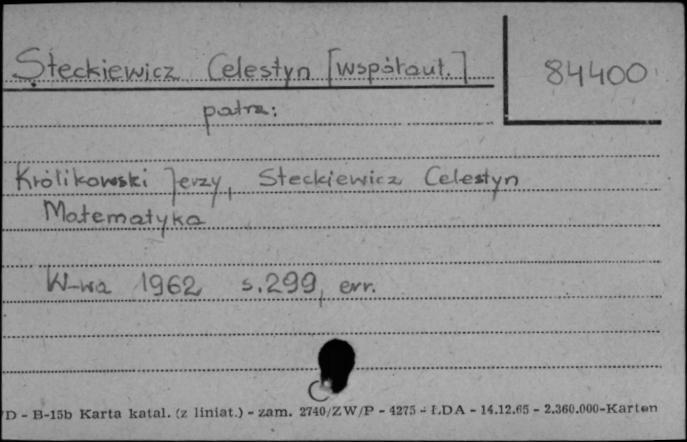 Steckiewicz Celestyn [współaut.]
84400
patrz:
Królikowski Jerzy, Steckiewicz Celestyn
Matematyka
W-wa 1962 s.299, err.
D - B-15b Karta katal. (z liniat.) - zam. 2740/ZW/P - 4275 - ŁDA - 14.12.65 - 2.360.000-Karton